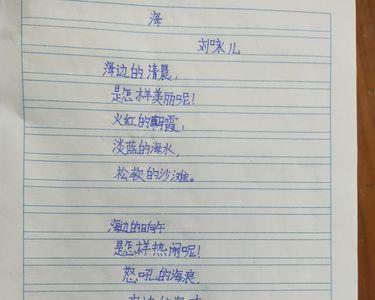 海
刘咏儿
海边的清晨，
是怎样美丽呢！
火红的朝霞，
淡蓝的海水，
松软的沙滩。
海边的晌午
是怎样热闹呢！
怒吼的海浪，